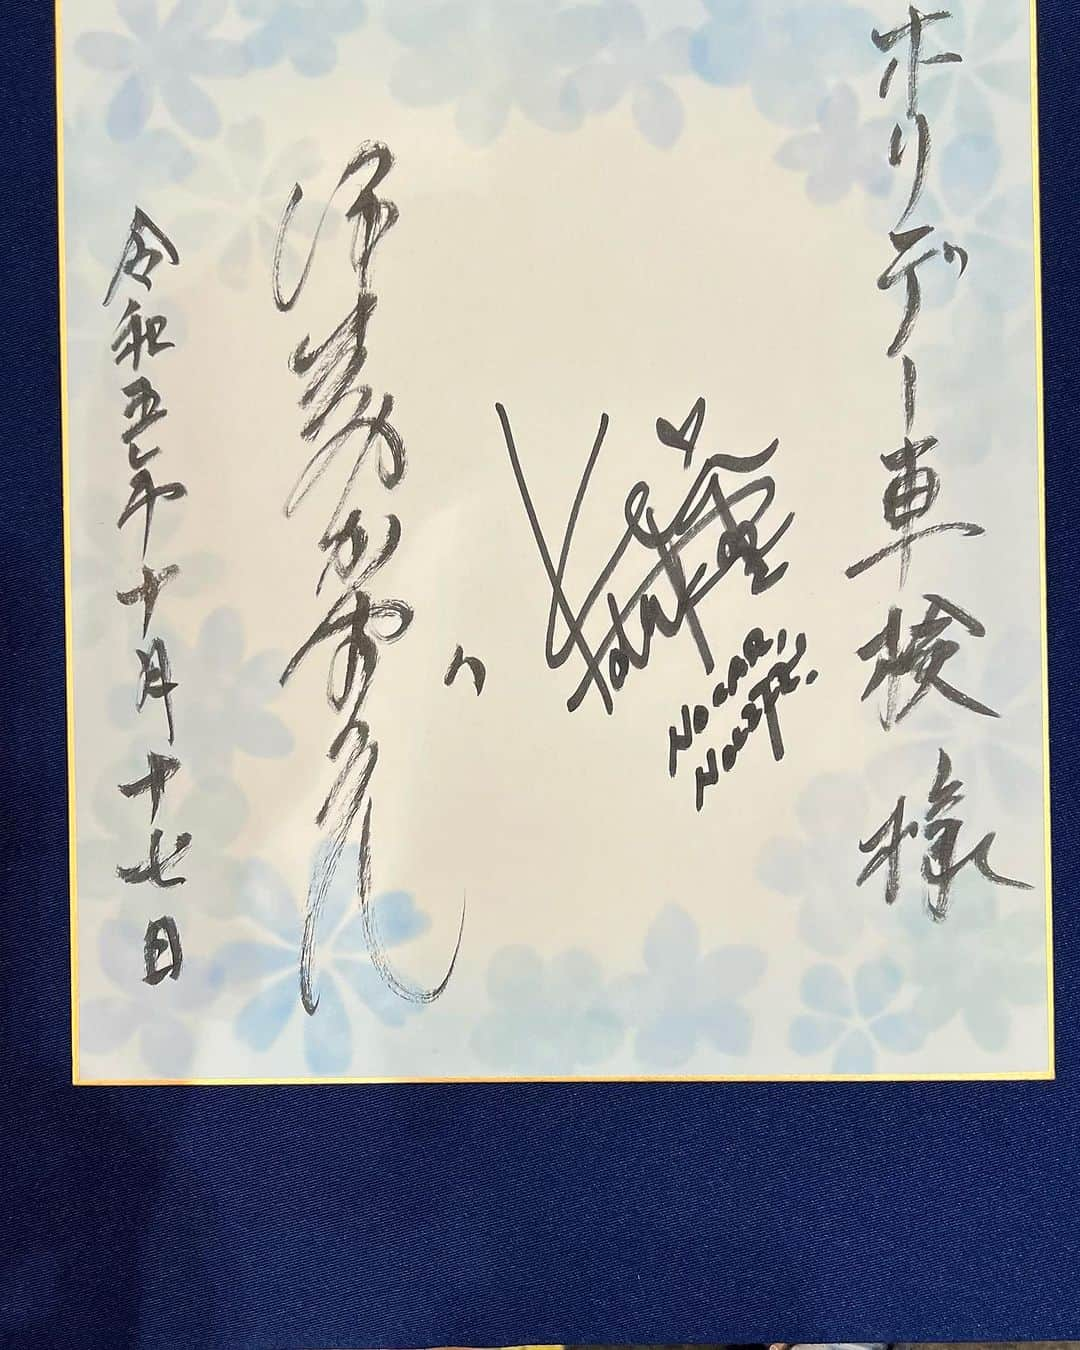 ホリデー車検様
NO CAR,
NO LIFE!
伊藤かずえ
令和五年十月十七日